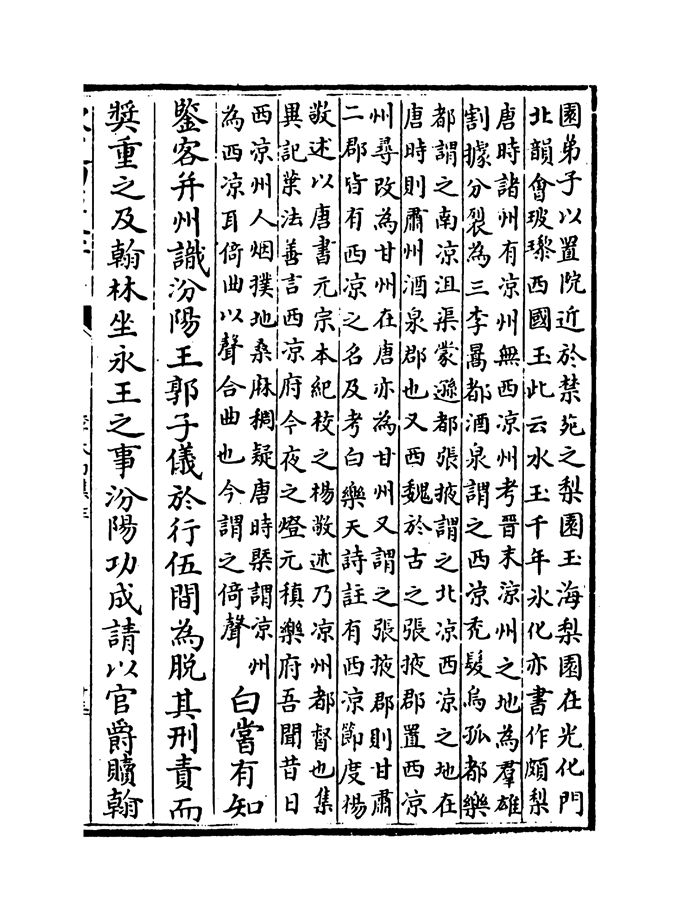 園弟子以置院近於禁苑之梨園玉海梨園在光化門
北韻會玻瓈西國玉此云水玉千年氷化亦書作頗梨
唐時諸州有涼州無西涼州考晉末涼州之地為羣雄
割據分裂為三李暠都酒泉謂之西涼禿髮烏孤都樂
都謂之南涼沮渠蒙遜都張掖謂之北涼西涼之地在
唐時則肅州酒泉郡也又西魏於古之張掖郡置西涼
州尋改為甘州在唐亦為甘州又謂之張掖郡則甘肅
二郡皆有西涼之名及考白樂天詩註有西涼節度楊
敬述以唐書元宗本紀校之楊敬述乃涼州都督也集
異記葉法善言西涼府今夜之燈元稹樂府吾聞昔日
西涼州人烟撲地桑麻稠疑唐時槩謂涼州
為西涼耳倚曲以聲合曲也今謂之倚聲
白嘗有知
鑒客并州識汾陽王郭子儀於行伍間為脱其刑責而
奬重之及翰林坐永王之事汾陽功成請以官爵贖翰